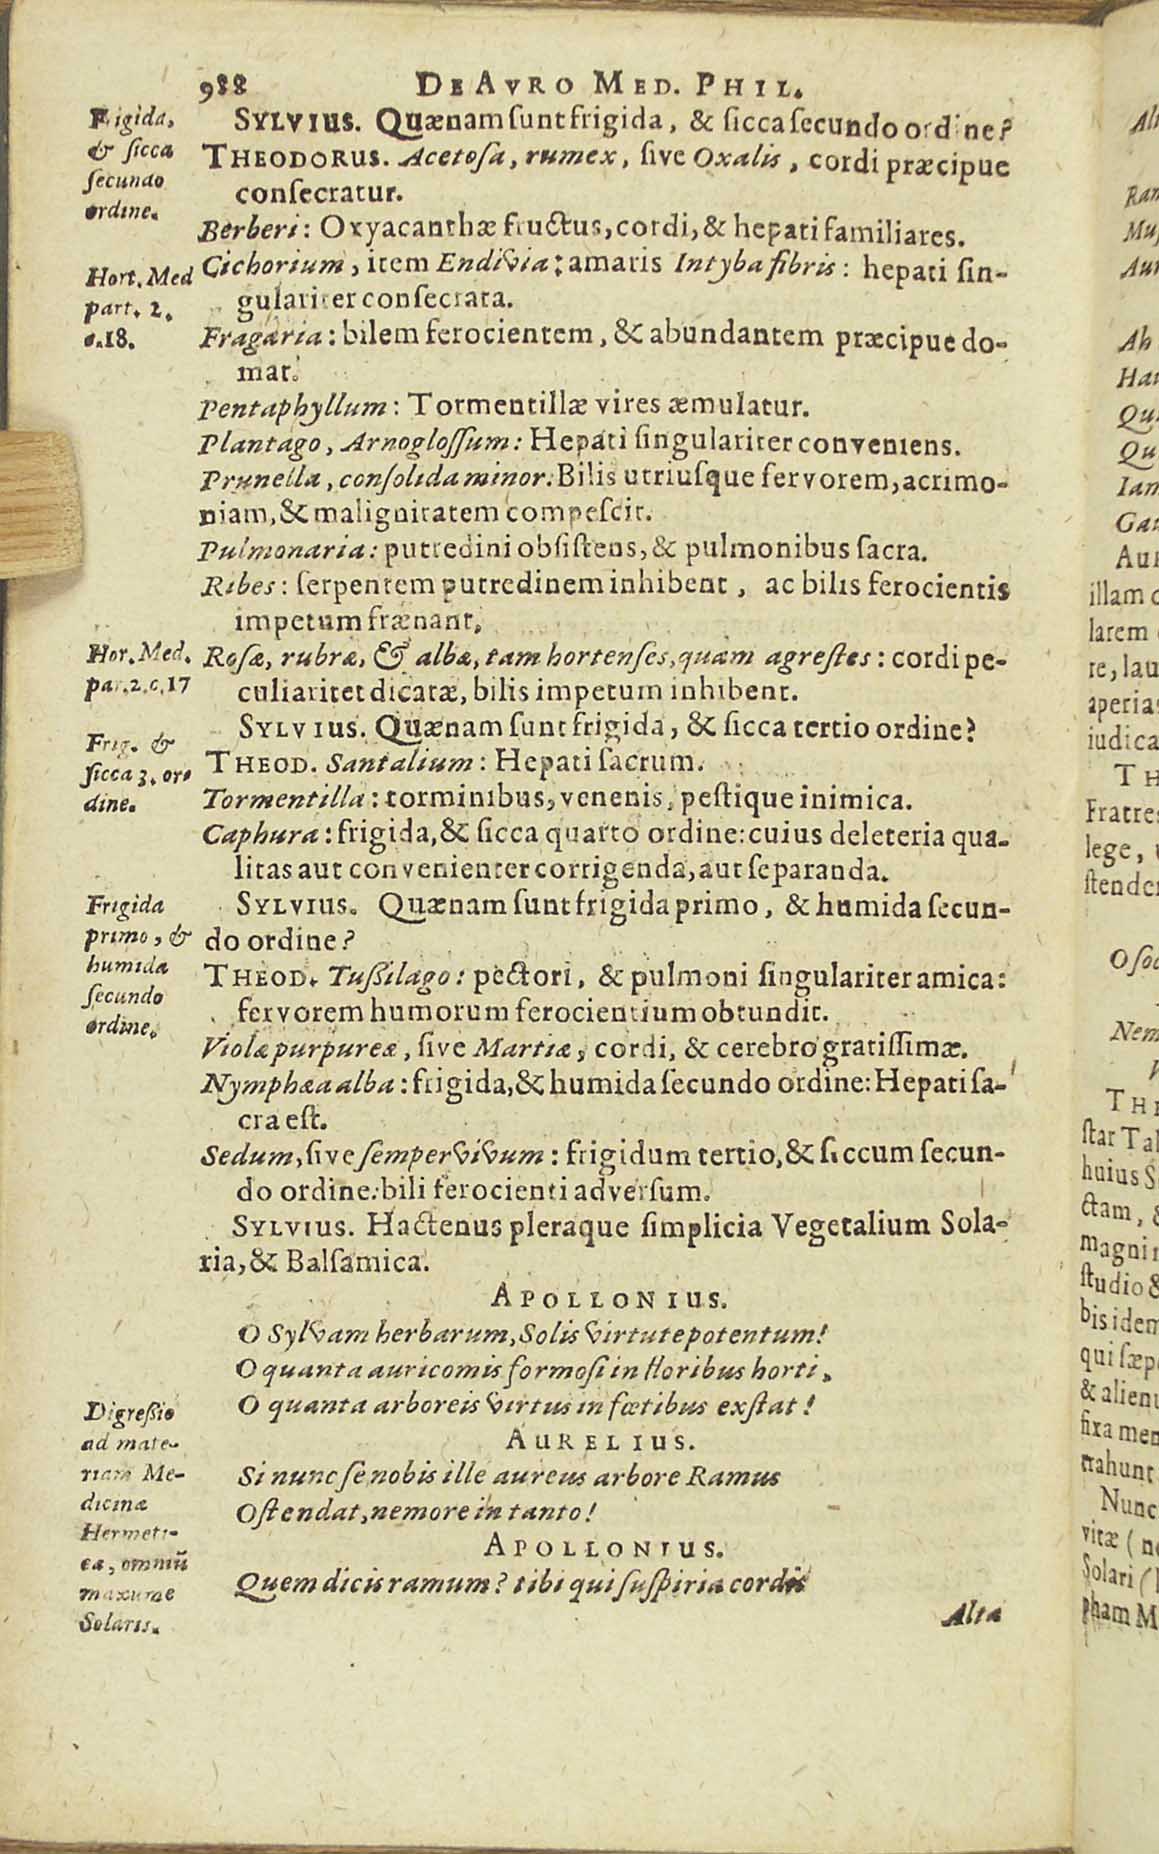 988 DE AVRO MED. PHIL.
Frigida,
& ſicca
ſecundo
ordine.
SYLVIUS. Quænam ſunt frigida, & ſicca ſecundo ordine?
THEODORUS. Acetoſa, rumex, ſive Oxalis, cordi præcipue
conſecratur.
Berberi: Oxyacanthæ fructus, cordi, & hepati familiares.
Hort. Med
part. 2.
c. 18.
Cichorium, item Endivia: amaris Intyba fibris: hepati ſin-
gulariter conſecrata.
Fragaria: bilem ferocientem, & abundantem præcipue do-
mat.
Pentaphyllum: Tormentillæ vires æmulatur.
Plantago, Arnogloſſum: Hepati ſingulariter conveniens.
Prunella, conſolida minor: Bilis utriuſque fervorem, acrimo-
niam, & malignitatem compeſcit.
Pulmonaria: putredini obſiſtens, & pulmonibus ſacra.
Ribes: ſerpentem putredinem inhibent, ac bilis ferocientis
impetum frænant.
Hor. Med.
par. 2. c. 17
Roſæ, rubræ, & albæ, tam hortenſes, quam agreſtes: cordi pe-
culiaritet dicatæ, bilis impetum inhibent.
Frig. &
ſicca 3. or-
dine.
SYLVIUS. Quænam ſunt frigida, & ſicca tertio ordine?
THEOD. Santalium: Hepati ſacrum.
Tormentilla: torminibus, venenis, peſtique inimica.
Caphura: frigida, & ſicca quarto ordine: cuius deleteria qua-
litas aut convenienter corrigenda, aut ſeparanda.
Frigida
primo, &
humida
ſecundo
ordine.
SYLVIUS. Quænam ſunt frigida primo, & humida ſecun-
do ordine?
THEOD. Tuſſilago: pectori, & pulmoni ſingulariter amica:
fervorem humorum ferocientium obtundit.
Violæ purpureæ, ſive Martiæ, cordi, & cerebro gratiſſimæ.
Nymphæa alba: frigida, & humida ſecundo ordine: Hepati ſa-
cra eſt.
Sedum, ſive ſempervivum: frigidum tertio, & ſiccum ſecun-
do ordine: bili ferocienti adverſum.
SYLVIUS. Hactenus pleraque ſimplicia Vegetalium Sola-
ria, & Balſamica.
APOLLONIUS.
O Sylvam herbarum, Solis virtute potentum!
O quanta auricomis formoſi in floribus horti,
O quanta arboreis virtus in fœtibus exſtat!
Digreſſio
ad mate-
riam Me-
dicinæ
Hermeti-
ca, omniũ
maxume
Solaris.
AURELIUS.
Si nunc ſe nobis ille aureus arbore Ramus
Oſtendat, nemore in tanto!
APOLLONIUS.
Quem dicis ramum? tibi qui ſuſpiria cordis
Alta
Ah
Hau
Qui
Gau
Aur
illam
larem
te, lau
aperias
iudica
TH
Fratres
lege,
ſtender
O ſoc
Nem
THE
ſtar Tal
huius S
ctam, &
magni
ſtudio &
bis idem
qui ſæpe
& alienu
fixa men
trahunt
Nunc
vitæ (ne
Solari (
pham M